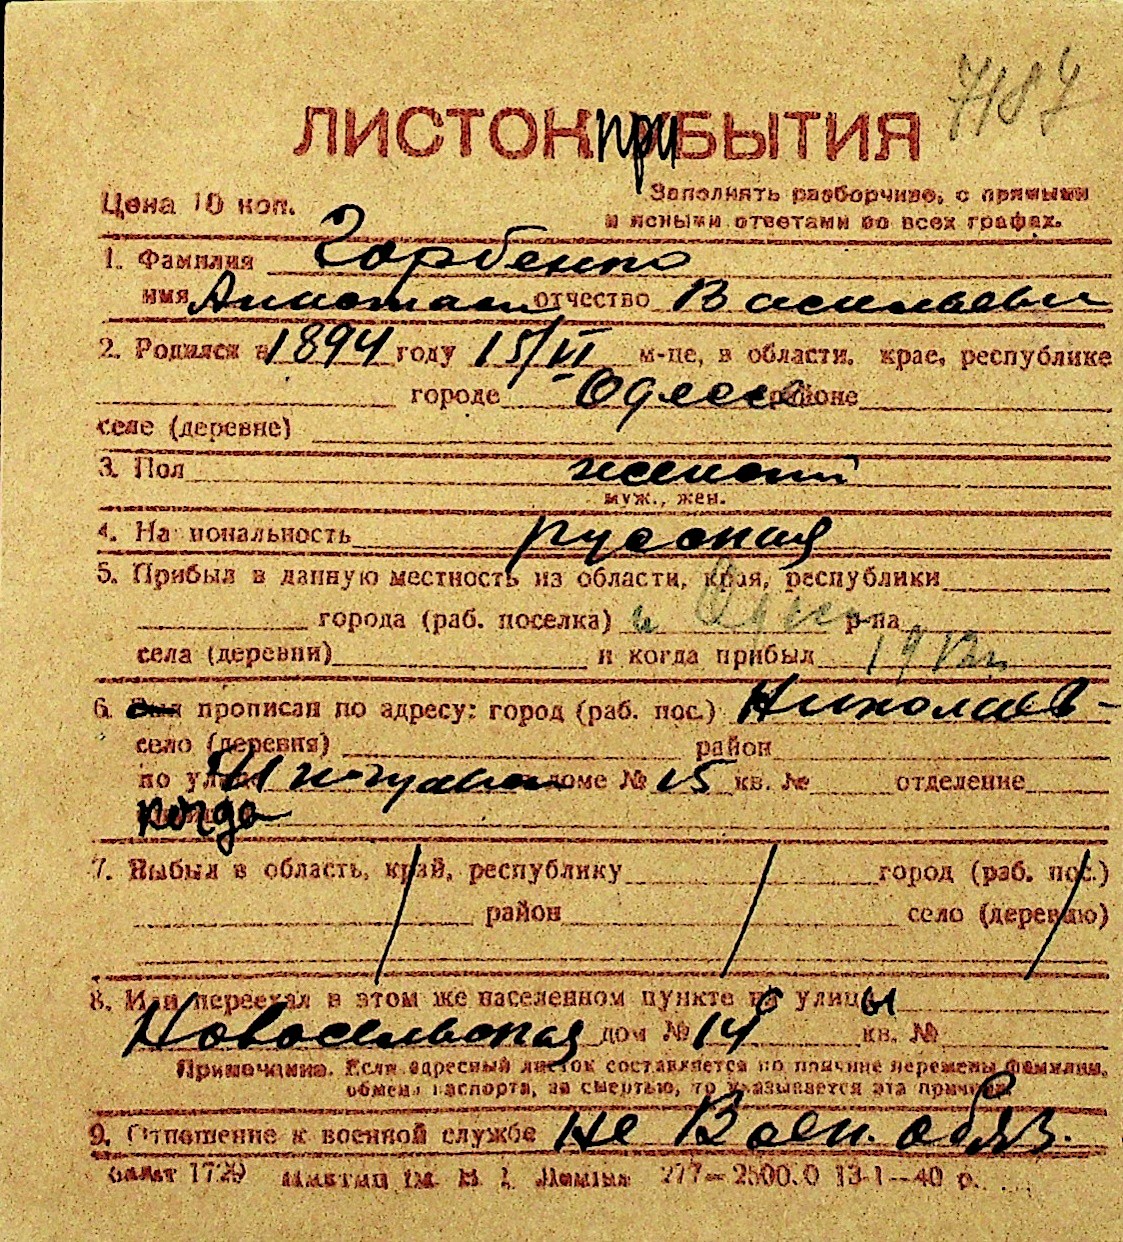 7187
ЛИСТОКприБЫТИЯ
Цена 10 коп.
Заполнять разборчиво, с прямыми
и ясными ответами во всех графах.
1. Фамилия Горбенко
имя отчество Васильевн
2. Родился в 1894 году 15/VI м-це, в области, крае, республике
городе Одесса районе
селе (деревне)
3. Пол женский
муж., жен.
4. Национальность русская
5. Прибыл в данную местность из области, края, республики
города (раб. поселка) р-на
села (деревни) и когда прибыл
6. Был прописан по адресу: город (раб. пос.) Николаев-
село (деревня) район
по улице доме № 15 кв. № отделение
когда
7. Выбыл в область, край, республику город (раб. пос.)
район село (деревню)
8. Или переехал в этом же населенном пункте с улицы
Новосельская дом № 14 кв. №
Примечание. Если адресный листок составляется по причине перемены фамилии,
обмена паспорта, за смертью, то указывается эта причина
9. Отношение к военной службе не Воен. обяз.
1729 277—2500.0 13-1—40 р.